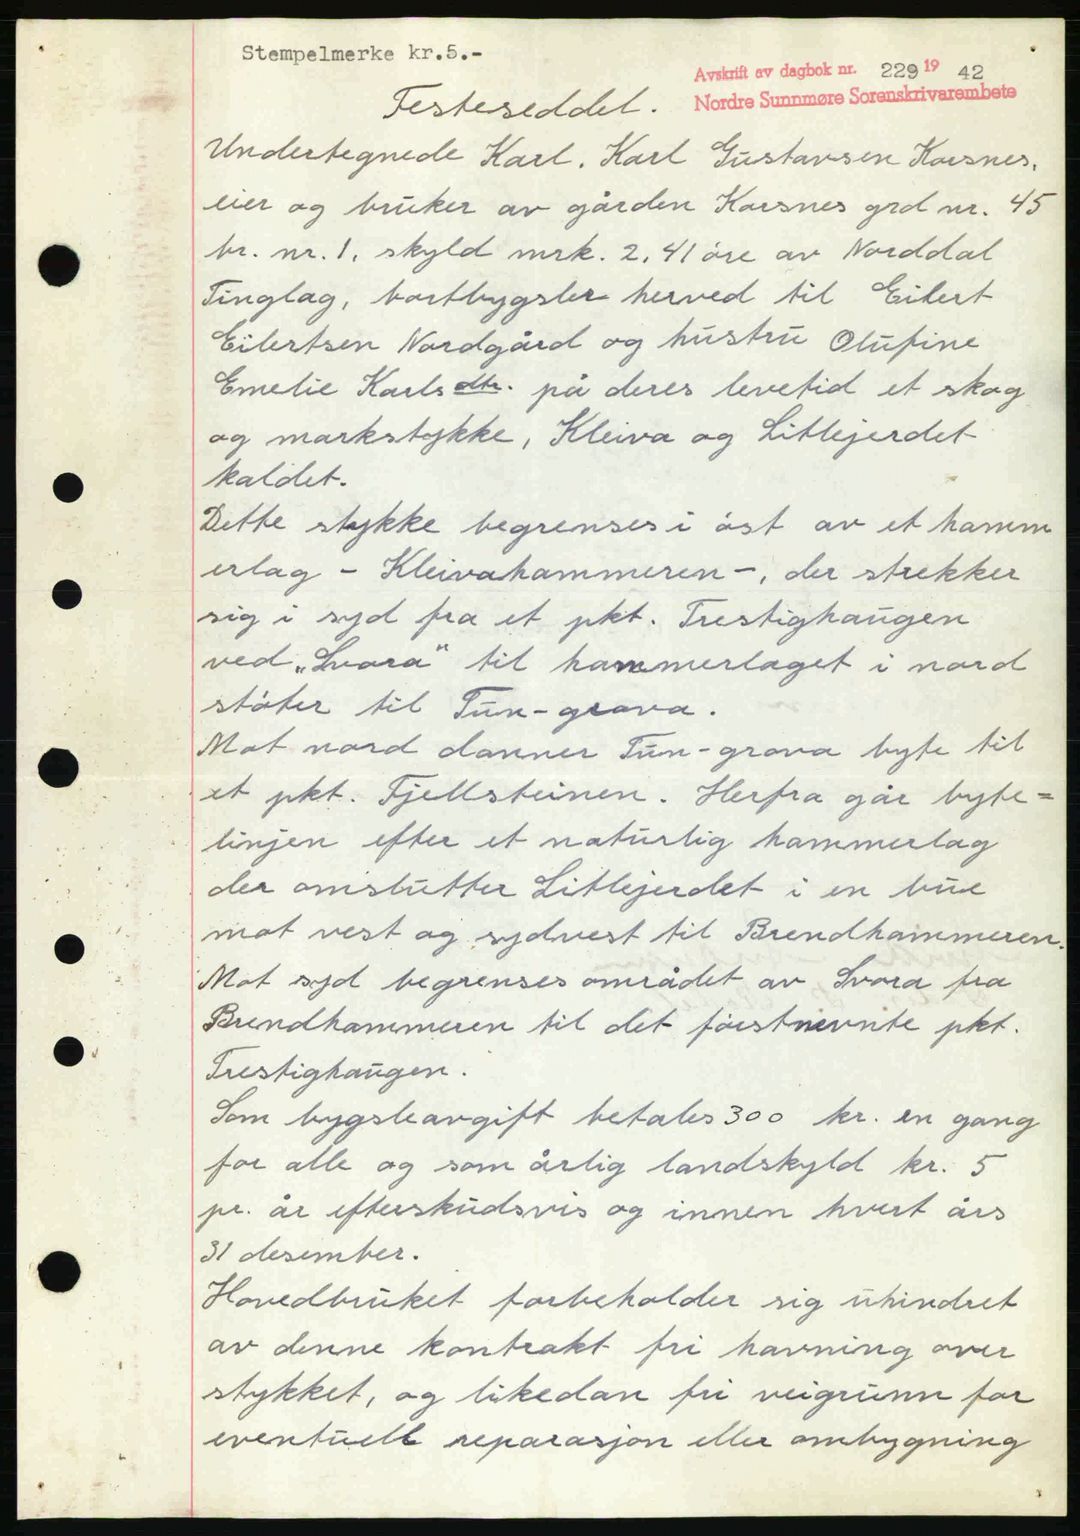 Stempelmerke kr.5.-
Avskrift av dagbok nr. 229 19 42
Nordre Sunnmøre Sorenskrivarembete
Festeseddel.
Undertegnede Karl. Karl Gustavsen Korsnes,
eier og bruker av gården Korsnes grd nr. 45
br. nr. 1, skyld mrk. 2,41 øre av Norddal
Tinglag, bortbygsler herved til Eilert
Eilertsen Nordgård og hustru Olufine
Emelie Karlsdtr. på deres levetid et skog
og markstykke, Kleiva og Litlejerdet
kaldet.
Dette stykke begrenses i øst av et hamm
erlag - Kleivahammeren -, der strekker
sig i syd fra et pkt. Trestighaugen
ved „Svora" til hammerlaget i nord
støter til Tun-grova.
Mot nord danner Tun-grova byte til
et pkt. Fjellsteinen. Herfra går byte=
linjen efter et naturlig hammerlag
der omslutter Litlejerdet i en bue
mot vest og sydvest til Brendhammeren.
Mot syd begrenses området av Svora fra
Brendhammeren til det førstnevnte pkt.
Trestighaugen.
Som bygsleavgift betales 300 kr. en gang
for alle og som årlig landskyld kr. 5
pr. år efterskudsvis og innen hvert års
31 desember.
Hovedbruket forbeholder sig uhindret
av denne kontrakt fri havning over
stykket, og likedan fri veigrunn for
eventuell reparasjon eller ombygning